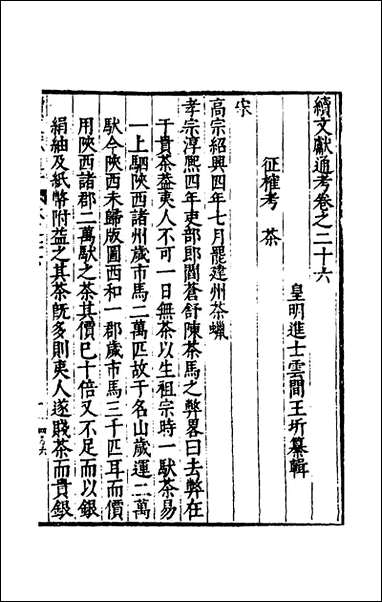 續文獻通考卷之二十六
皇明進士雲間王圻纂輯
征榷考　茶
宋
高宗紹興四年七月罷建州茶蠟
孝宗淳熙四年吏部郎閻蒼舒陳茶馬之弊畧曰去弊在
于貴茶葢夷人不可一日無茶以生祖宗時一䭾茶易
一上駟陝西諸州歲市馬二萬匹故于名山歲運二萬
䭾今陝西未歸版圖西和一郡歲市馬三千匹耳而價
用陝西諸郡二萬䭾之茶其價已十倍又不足而以銀
絹紬及紙幣附益之其茶旣多則夷人遂賤茶而貴銀